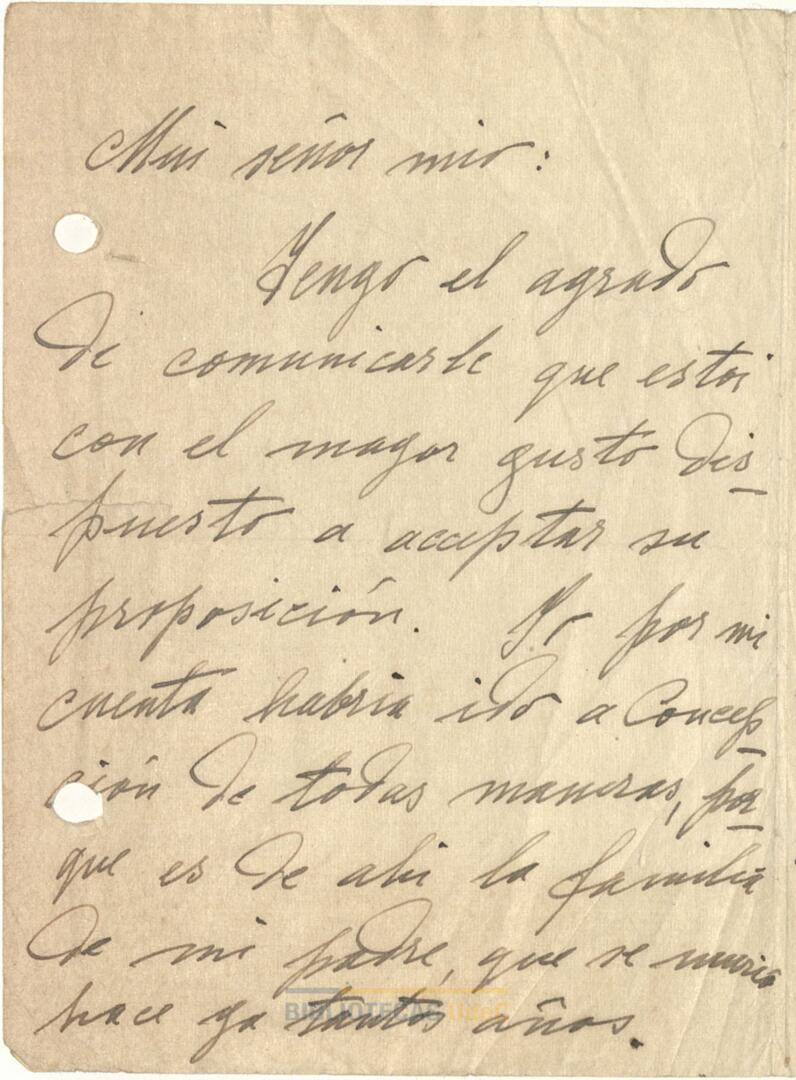 Mui señor mio:
Tengo el agrado
de comunicarle que estoi
con el mayor gusto dis-
puesto a acceptar su
proposición. Yo por mi
cuenta habria ido a Concep-
ción de todas maneras, por-
que es de ahi la familia
de mi padre, que se murio
hace ya tantos años.
BIBLIOTECAS UdeC